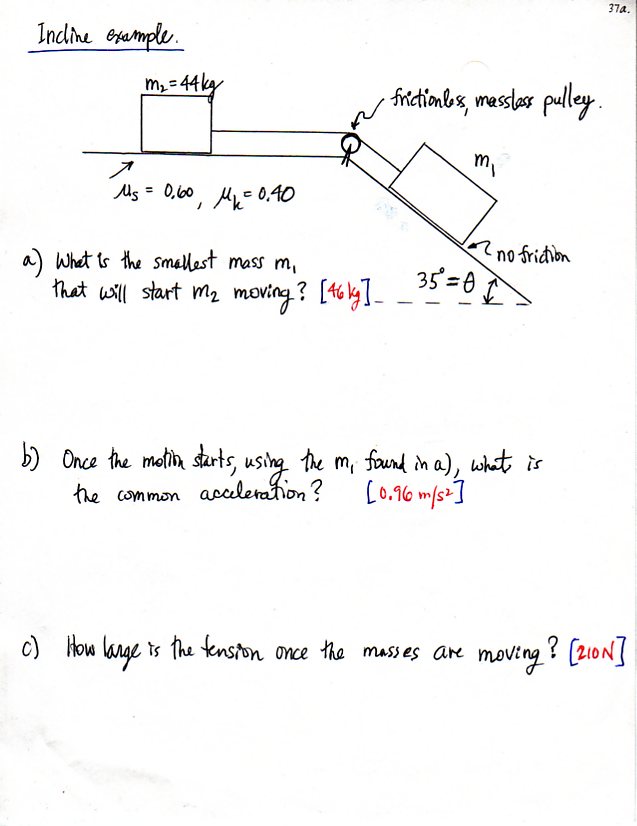 37a.
Incline example.
m₂ = 44 kg
frictionless, massless pulley.
m₁
μs = 0.60, μk = 0.40
no friction
a) What is the smallest mass m₁
that will start m₂ moving? [46 kg]
35° = θ
b) Once the motion starts, using the m₁ found in a), what is
the common acceleration? [0.96 m/s²]
c) How large is the tension once the masses are moving? [210N]